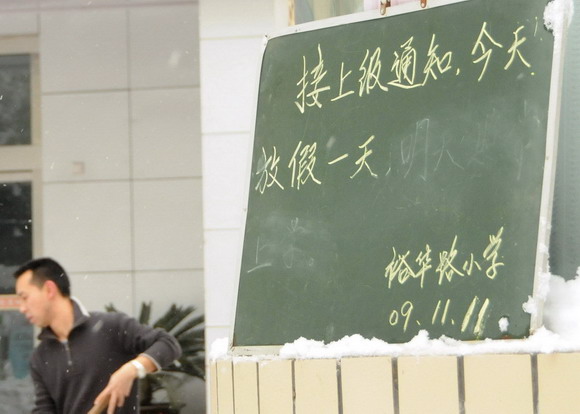 接上级通知，今天
放假一天，明天
上学
裕华路小学
09.11.11